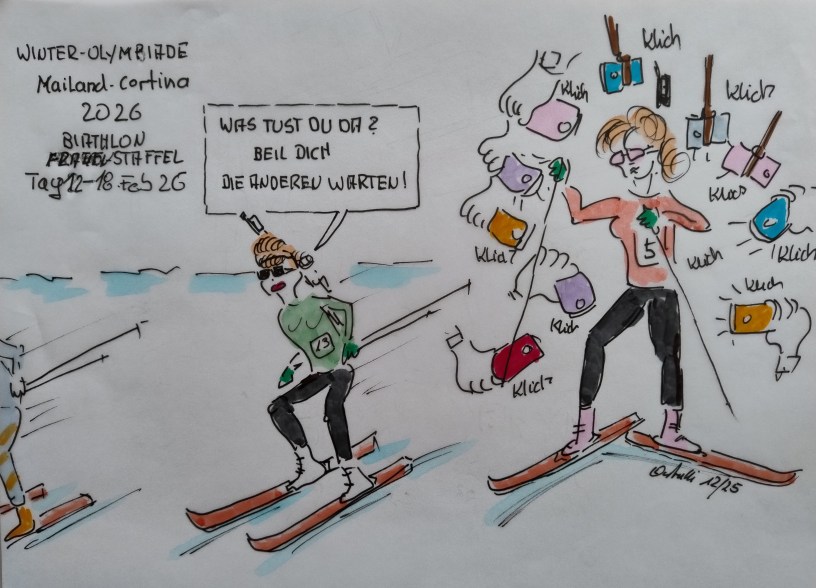 WINTER-OLYMPIADE
Mailand-Cortina
2026
BIATHLON
STAFFEL
Tag 12-18. Feb 26
WAS TUST DU DA?
BEIL DICH
DIE ANDEREN WARTEN!
13
5
Klich
Klich
Klich
Klick
Klich
Klich
Klich
Klich
Klich
Klich
12/25